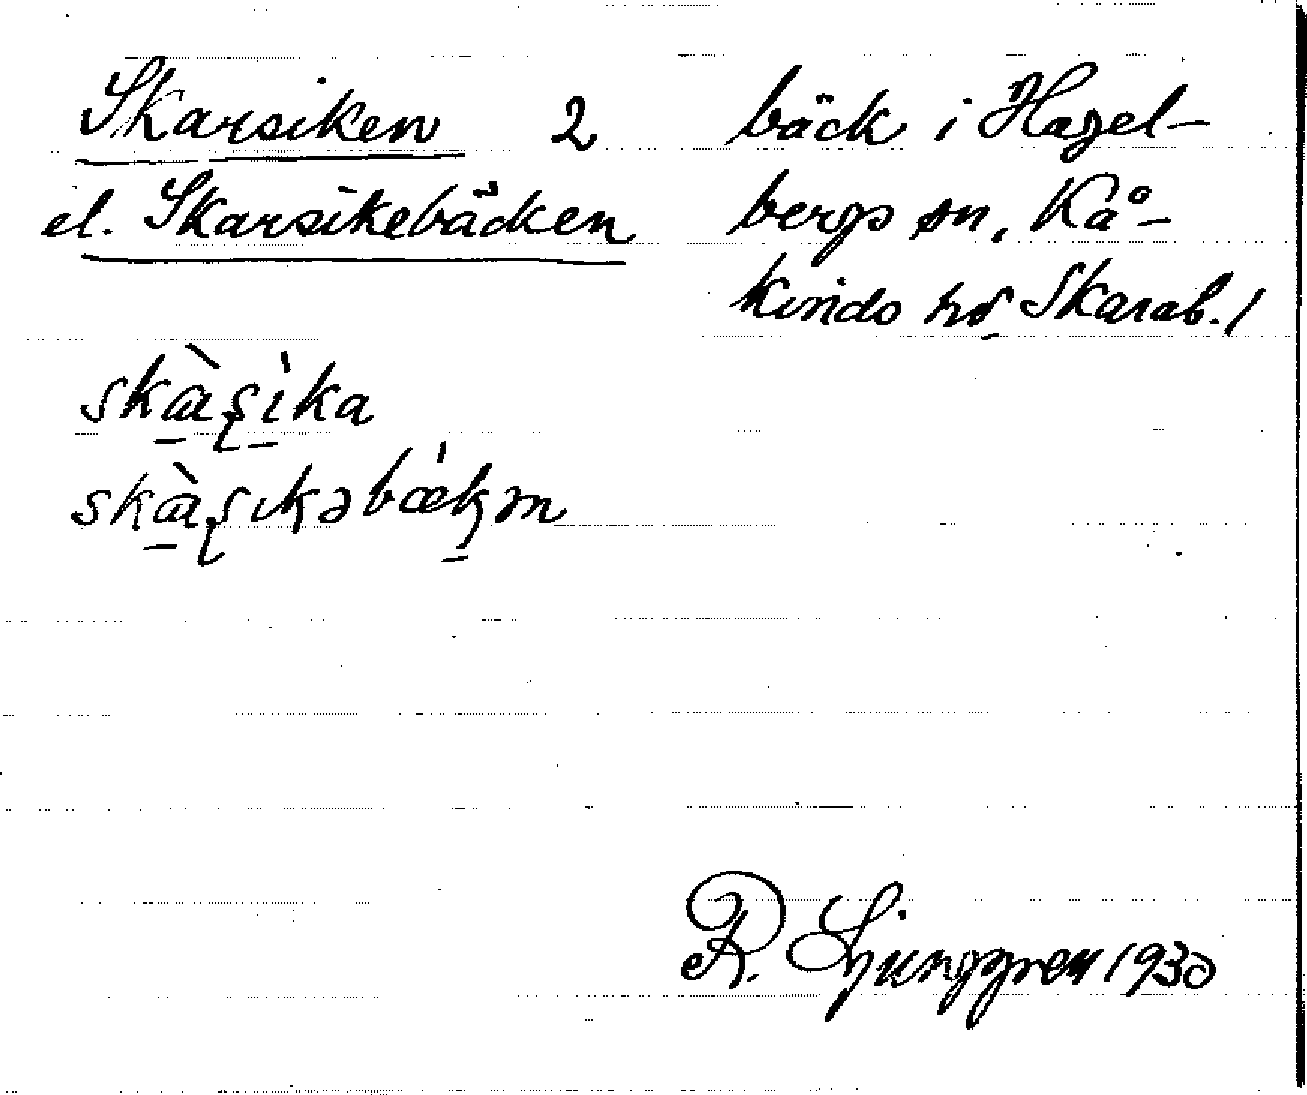 Skarsiken 2
el. Skarsikebäcken
bäck i Hagel-
bergs sn, Kå-
kinds hd Skarab. l
skàʂìka
skàʂıkəbækən
R. Ljunggren 1930